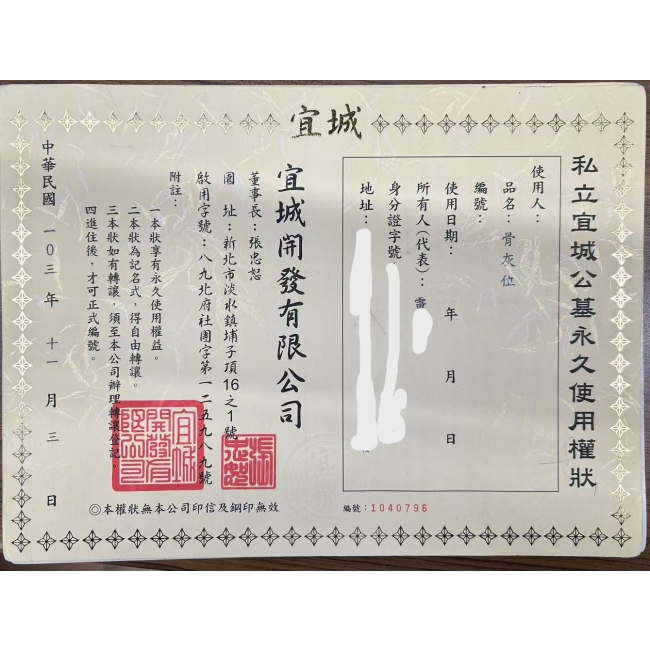 宜城
私立宜城公墓永久使用權狀
使用人：
品名：骨灰位
編號：
使用日期：　年　月　日
所有人（代表）：雷
身分證字號
地址：
編號：1040796
宜城開發有限公司
董事長：張忠恕
園　址：新北市淡水鎮埔子頂16之1號
啟用字號：八九北府社團字第一二五九八九號
附註：
一本狀享有永久使用權益。
二本狀為記名式，得自由轉讓。
三本狀如有轉讓，須至本公司辦理轉讓登記。
四進住後，才可正式編號。
中華民國 一0三 年 十一 月 三 日
◎本權狀無本公司印信及鋼印無效